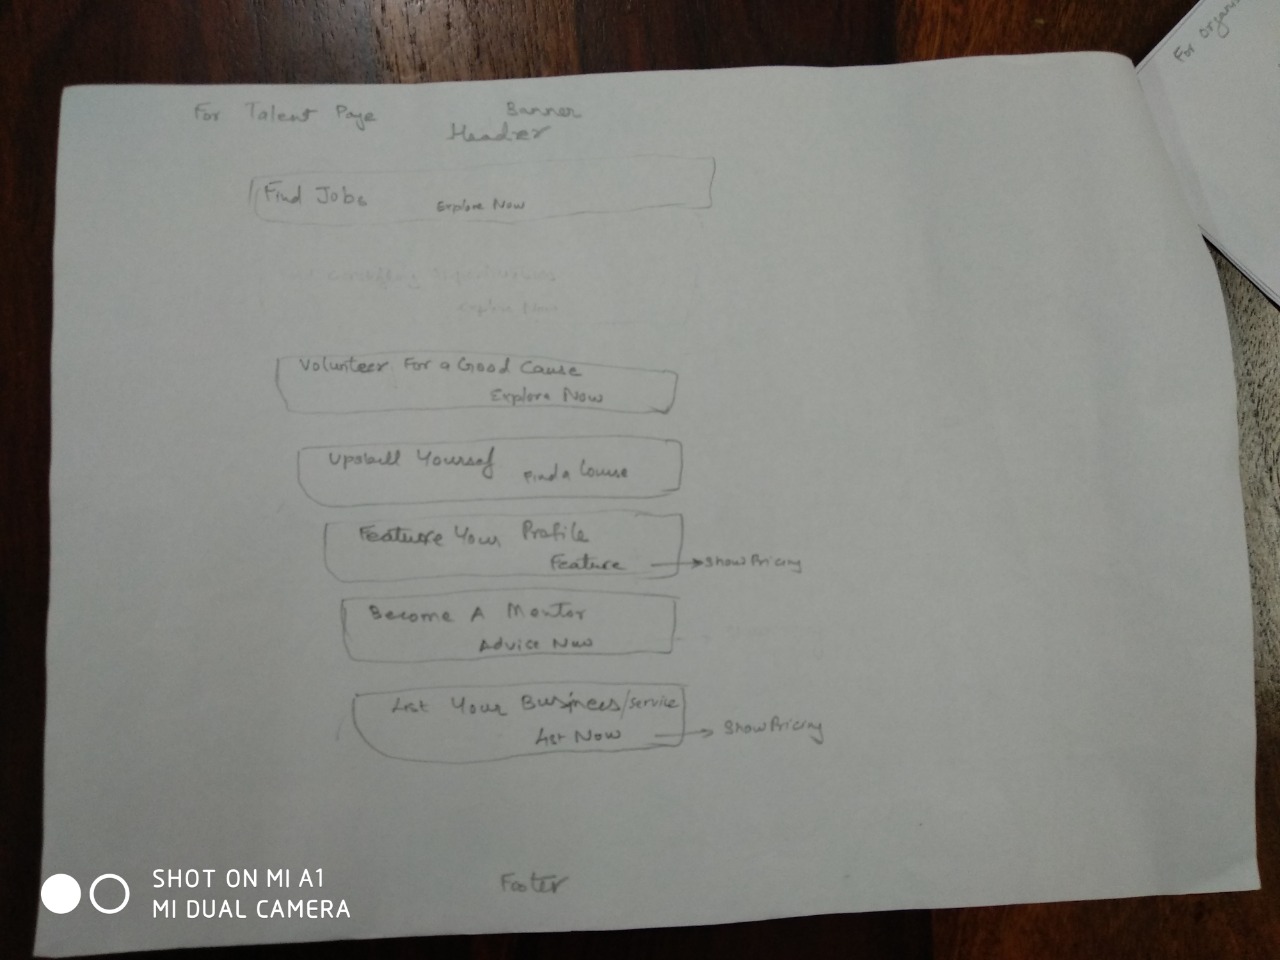 For Talent Page
Banner
Header
Find Jobs
Explore Now
Explore Now
Volunteer For a Good Cause
Explore Now
Upskill Yourself
Find a Course
Feature Your Profile
Feature → Show Pricing
Become A Mentor
Advice Now
List Your Business/service
List Now → Show Pricing
Footer
For Organis
SHOT ON MI A1
MI DUAL CAMERA